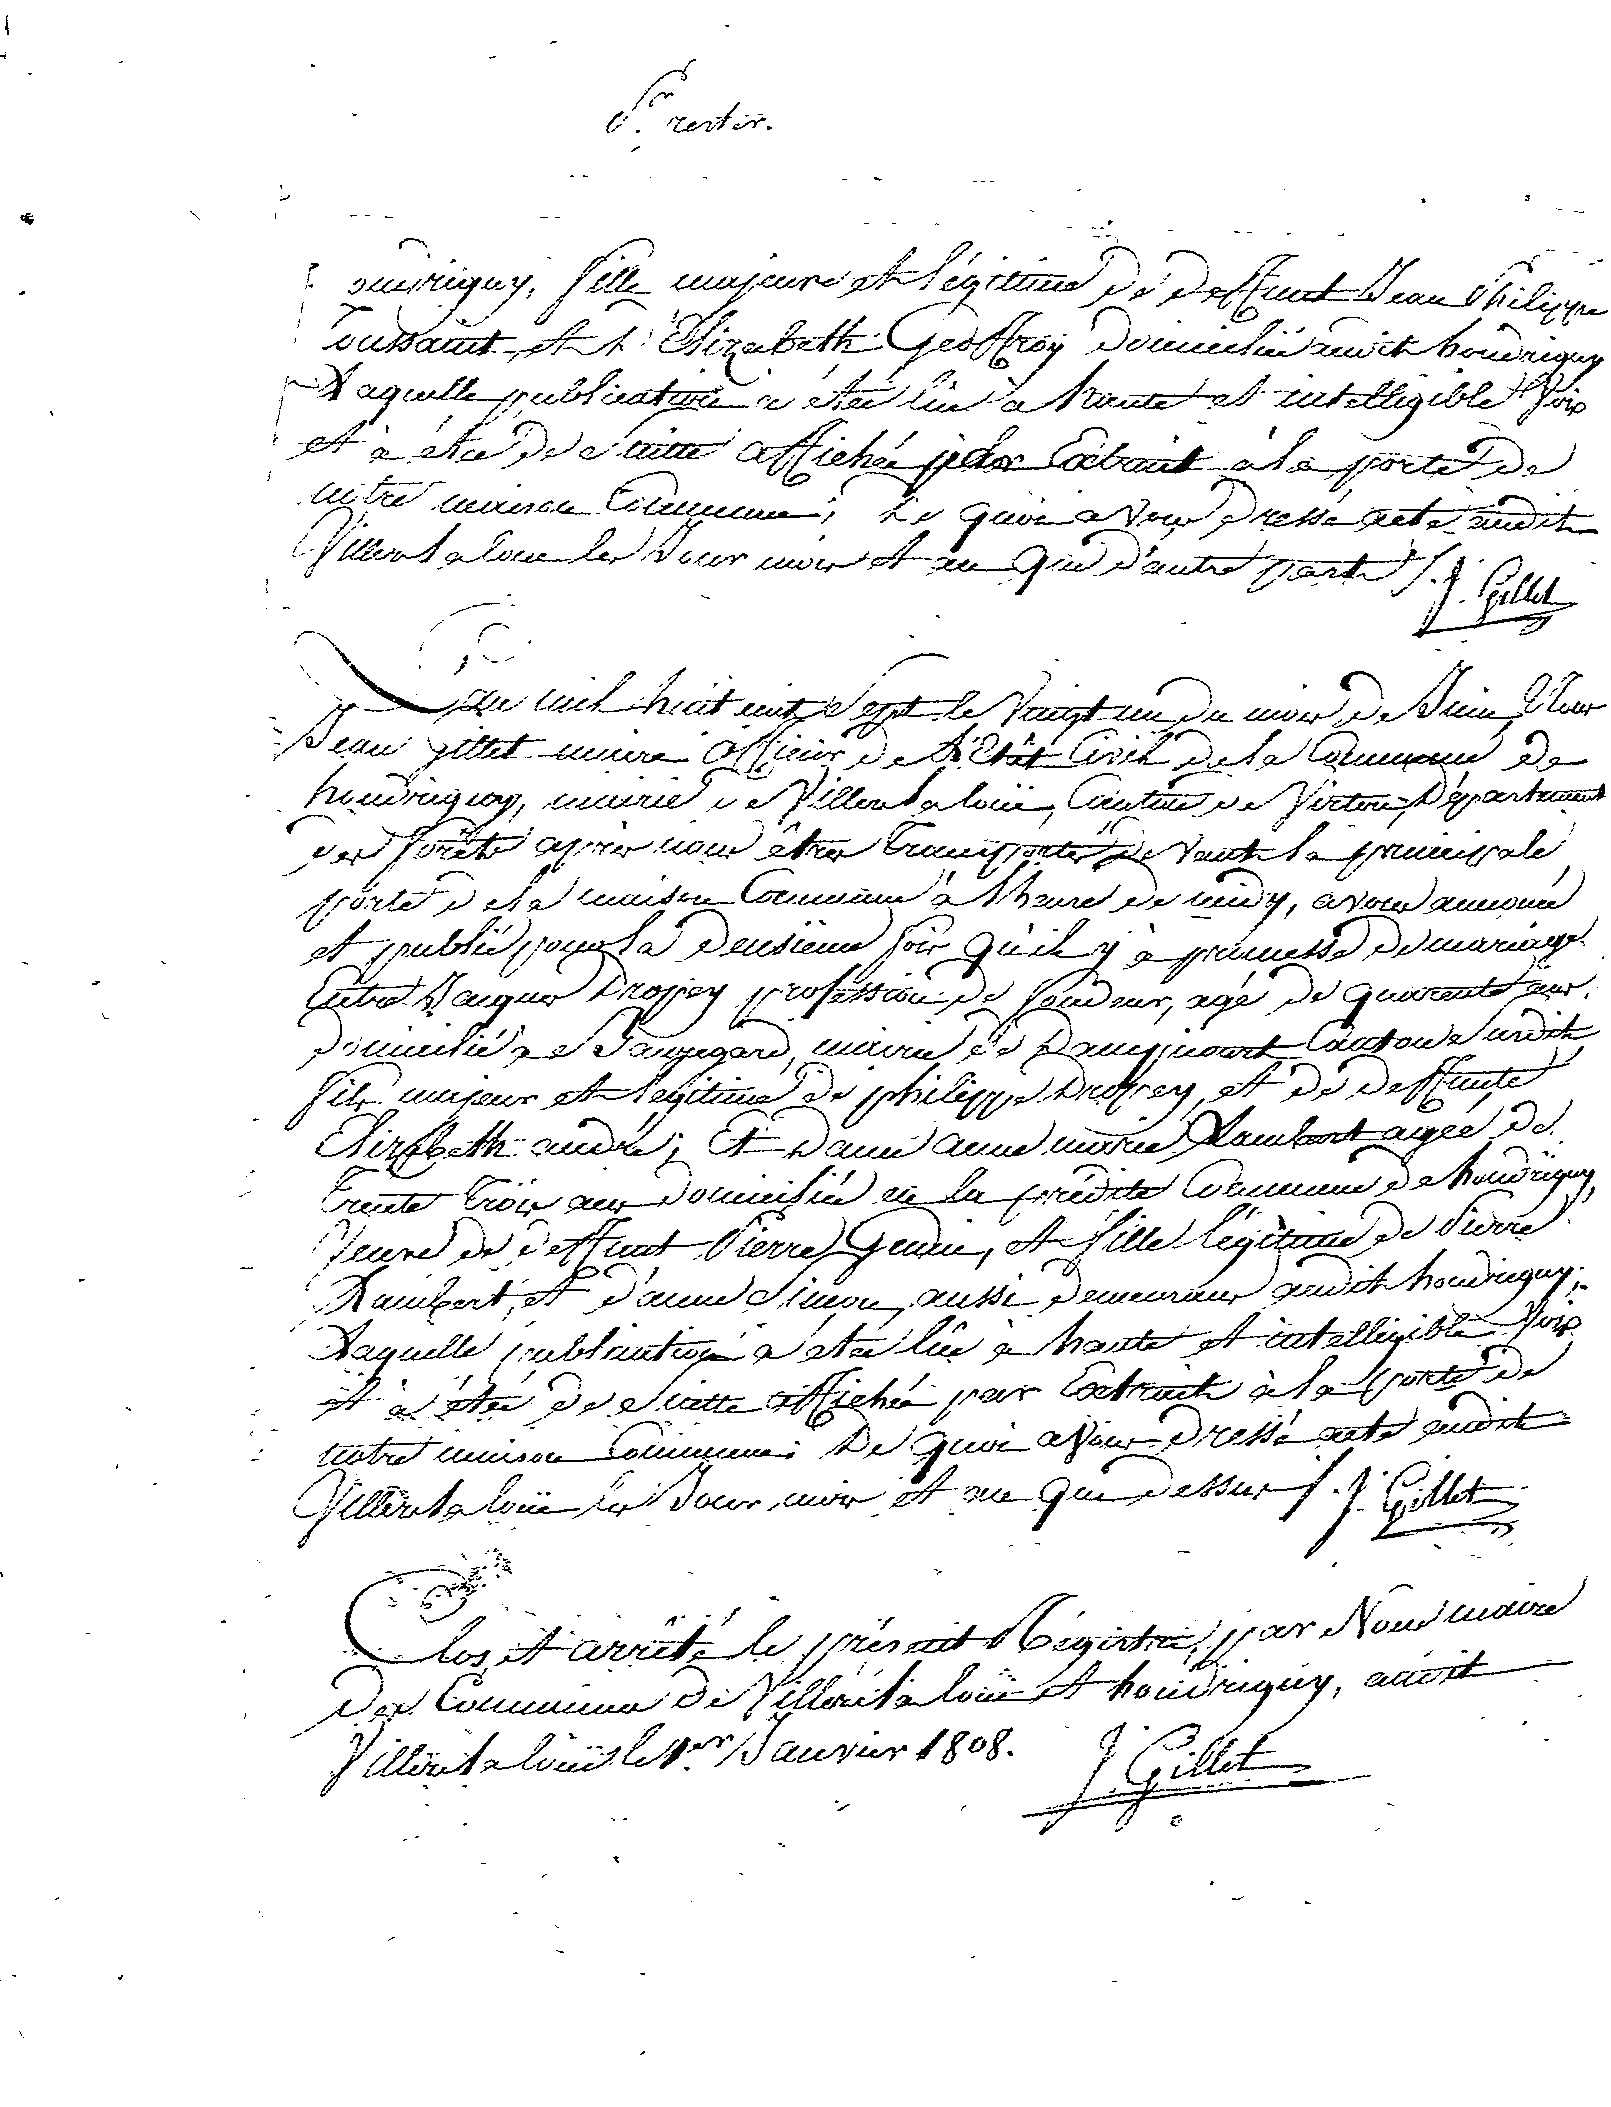 houdrigny, fille majeure et légitime de deffunt Jean Philippe
Toussaint et d'Elizabeth Geoffroy domiciliée audit houdrigny
Laquelle publication a étée lüe a haute et intelligible voix
et à étée de suitte affichée par Extrait à la porte de
nôtre maison Commune; De quoi avons dressé acte audit
Villers la loue les Jour mois et an que d'autre part J. Gillet
L'an mil huit cent sept le vingt un du mois de Juin, Nous
Jean gillet maire officier de L'Etât Civil de la Commune de
houdrigny, mairie de Villers la loüe, Canton de Virton, Département
des forêts après nous être transportés devant la principale
porte de la maison Commune à l'heure de midy, avons annoncé
et publié pour la deusième fois qu'il y à promesse de mariage
Entre Jacques Propey profession de fondeur, agé de quarante ans,
domicilié a Sauvegard, mairie de Dampicourt Canton susdit
fils majeur et légitime de philippe Propey, et de deffunte
Elizabeth andré; Et Dame anne marie Lambert agée de
trente trois ans domiciliée en la prédite Commune de houdrigny,
Veuve de deffunt Pierre Gendre, et fille légitime de Pierre
Lambert, et d'anne Simon, aussi demeurans audit houdrigny;
Laquelle publication à étée lüe à haute et intelligible voix
et à étée de suitte affichée par Extrait à la porte de
nôtre maison Commune; De quoi avons dressé acte audit
Villers la loüe les Jour mois et an que dessus J. Gillet
Clos et arrêté le présent Régistre, par Nous maire
des Communes de Villers la loüe et houdrigny, audit
Villers la loüe le 1.er Janvier 1808. J. Gillet